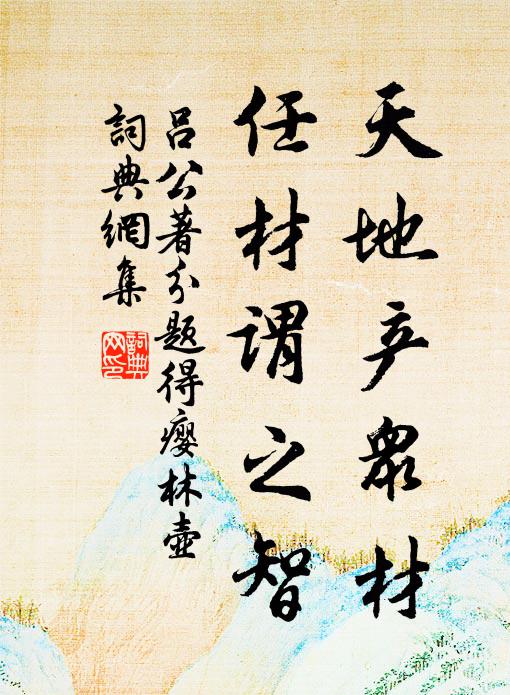 天地产眾材
任材谓之智
吕公著分题得癭林壺
詞典網集
詞典網印